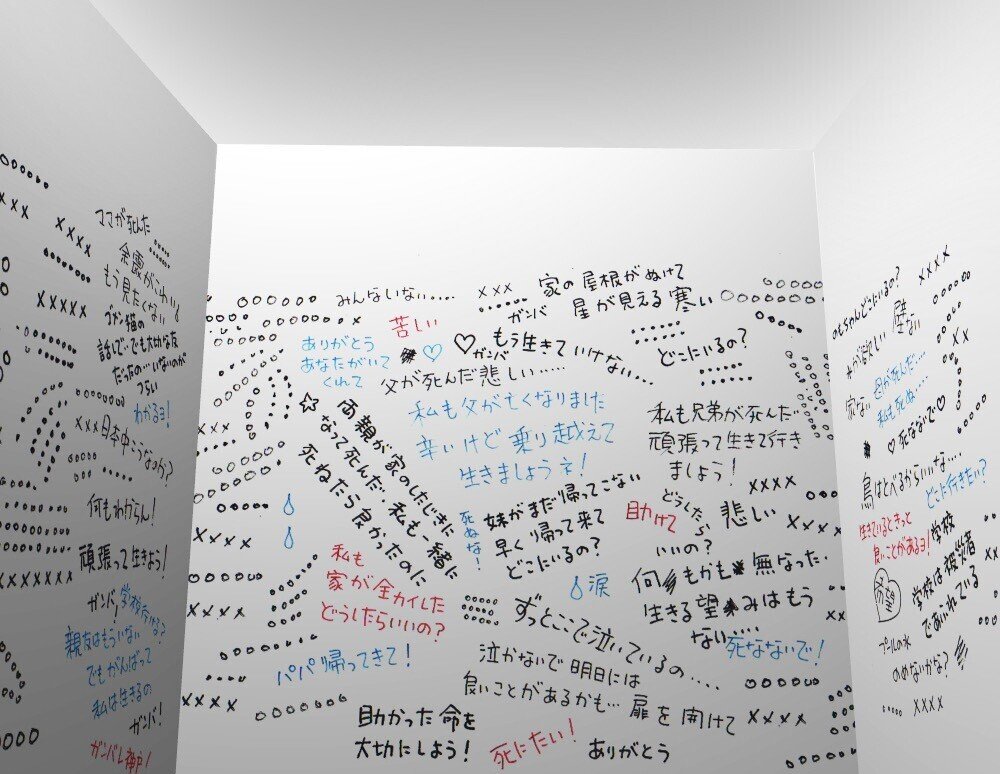 ママが死んだ
余震がこわい
もう見たくない
ゴメン猫の
話しで‥でも大切な友
だったの…いないのが
つらい
わかるヨ!
×××日本中こうなのか?
何もわからん!
頑張って生きよう!
ガンバ!
親友はもういない
でもがんばって
私は生きるの
ガンバ!
みんないない....
×××
家の屋根がぬけて
星が見える寒い
ガンバ
苦しい
ありがとう
あなたがいて
くれて
♡
♡
ガンバ
もう生きていけない...
どこにいるの?
父が死んだ悲しい.....
私も父が亡くなりました
辛いけど乗り越えて
生きましょうネ!
☆両親が家のしたじきに
なって死んだ‥私も一緒に
死ねたら良かったのに
私も兄弟が死んだ
頑張って生きて行き
ましょう!
××××
死ぬな!
妹がまだ帰ってこない
早く帰って来て
どこにいるの?
助けて
どうした
ら
いいの?
悲しい
私も
家が全カイした
どうしたらいいの?
涙
何もかも無なった‥
生きる望みはもう
ない……
死なないで!
ずっとここで泣いているの....
パパ帰ってきて!
泣かないで明日には
良いことがあるかも…扉を開けて
××××
助かった命を
大切にしよう!
死にたい!
ありがとう
××××
壁ない
家ない
母が死んだ…
私も死ぬ…
♡死なないで♡
鳥はとべるからいいな....
どこに行きたい?
生きているときっと
良いことがあるヨ!
学校
学校は被災者
であふれている
希望
プールの水
のめないかな?
××××